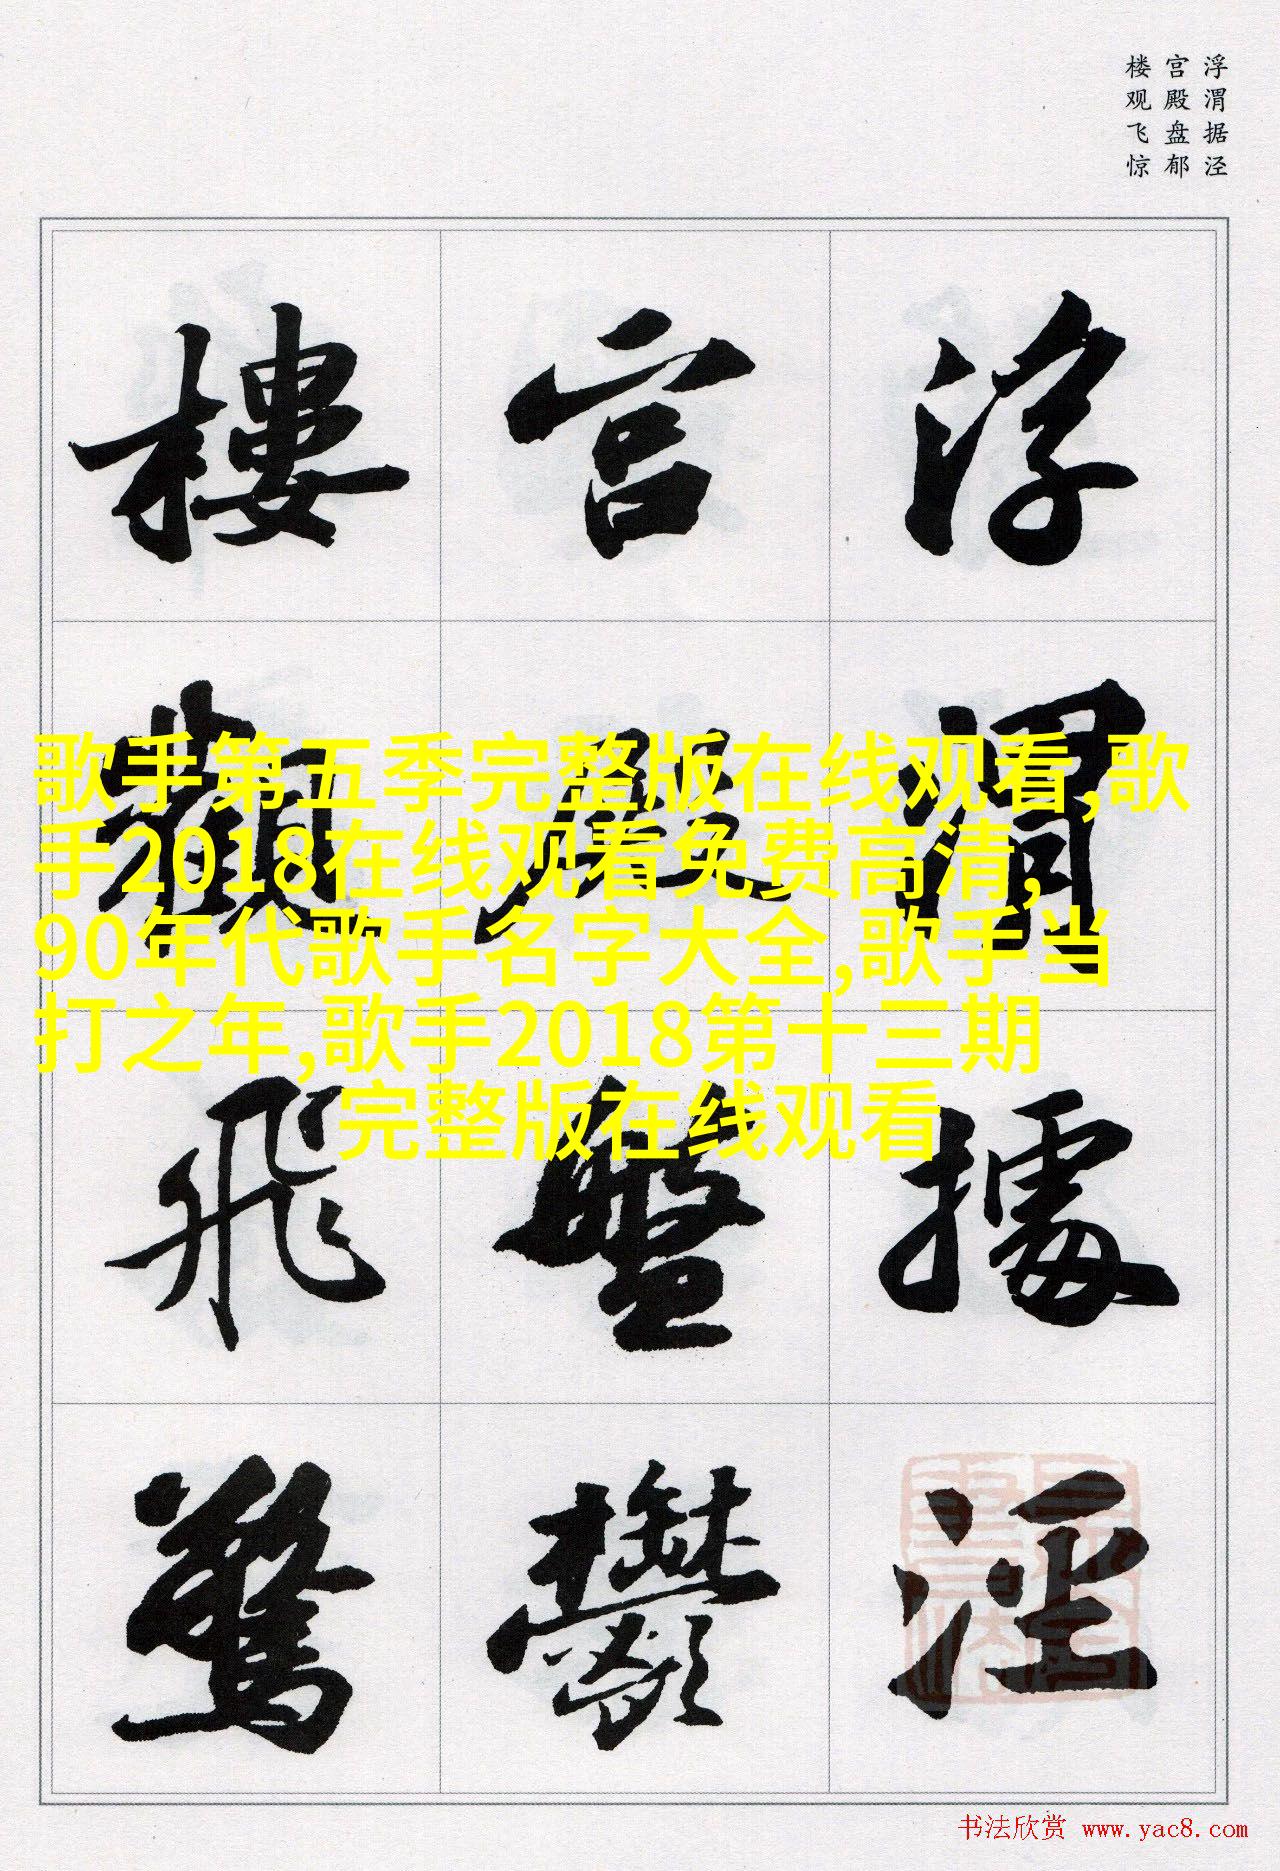 浮渭据泾
宫殿盘郁
楼观飞惊
浮渭據涇
宫殿盤鬱
樓觀飛驚
歌手第五季完整版在线观看,歌
手2018在线观看免费高清,
90年代歌手名字大全,歌手当
打之年,歌手2018第十三期
完整版在线观看
书法欣赏 www.yac8.com